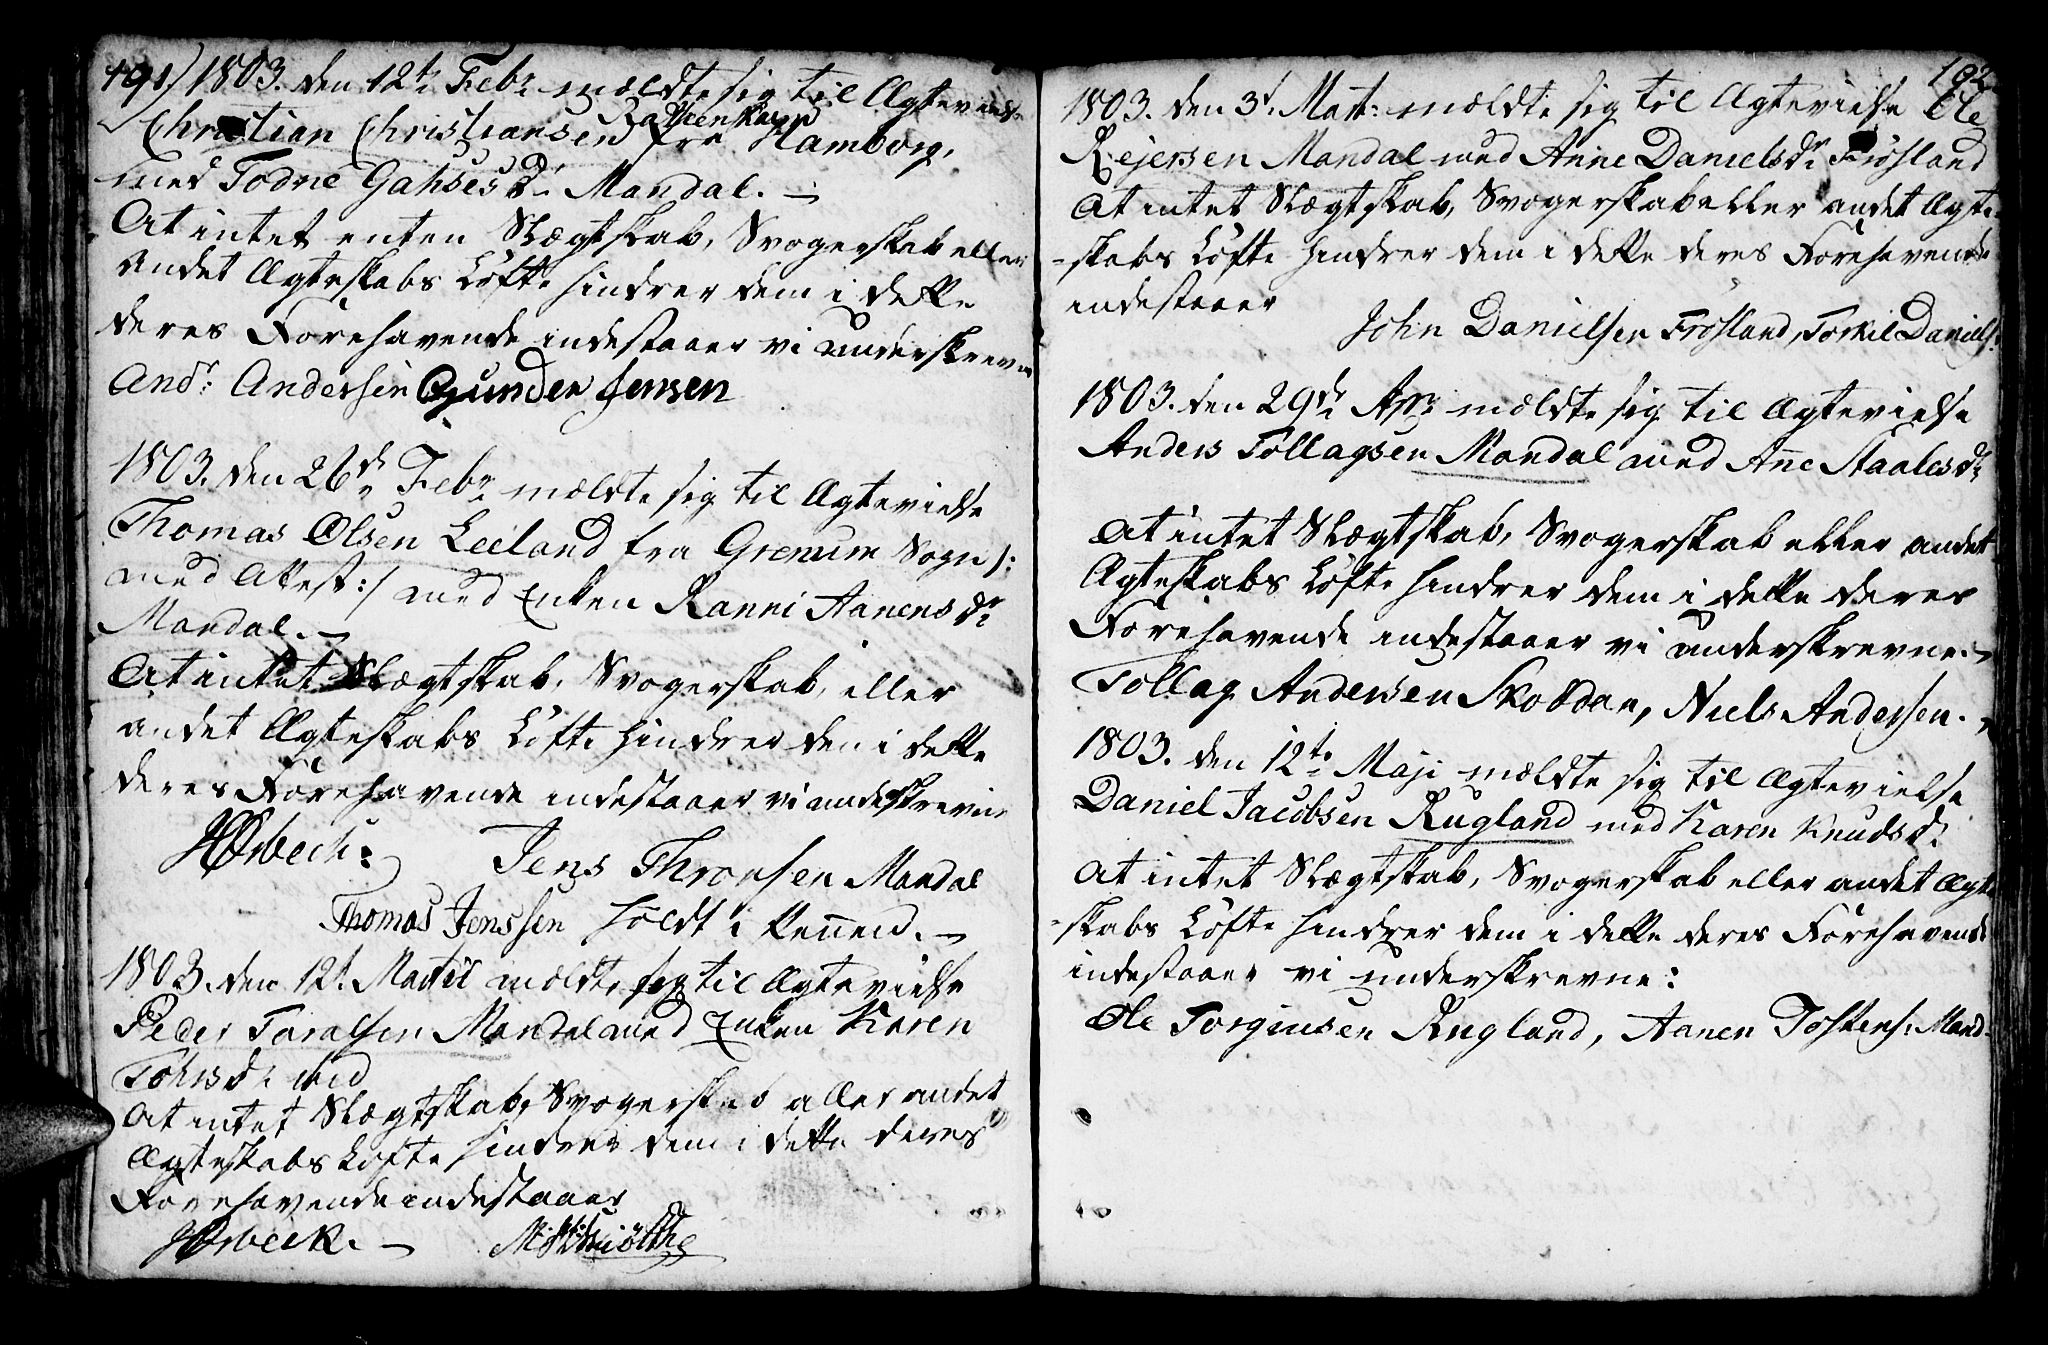 191) 1803. den 12te Febr mældte sig til Ægtevielse
Rathenkamp
Christian Christiansen fra Hamborg,
med Todne Gahses Dr Mandal. –
At intet enten Slægtskab, Svogerskab eller
andet Ægteskabs Løfte hindrer dem i dette
deres Forehavende indestaaer vi underskrevne
Andr: Andersen Gunder Jensen
1803. den 26de Febr mældte sig til Ægtevielse
Thomas Olsen Leeland fra Grenum Sogn /:
med Attest :/ med Enken Ranni Aanens dr
Mandal. –
At intet Slægtskab, Svogerskab, eller
andet Ægteskabs Løfte hindrer dem i dette
deres Forehavende indestaaer vi underskrevne
Jens Thronsen Mandal
Thomas Jenssen holdt i Pennen. –
1803. den 12t Martii mældte sig til Ægtevielse
Peder Taralsen Mandal med Enken Karen
Tohrs dr ibid
At intet Slægtskab, Svogerskab eller andet
Ægteskabs Løfte hindrer dem i dette deres
Forehavende indestaaer
192
1803. den 3d. Mart: mældte sig til Ægtevielse Ole
Rejersen Mandal med Anne Daniels dr Frøsland
At intet Slægtskab, Svogerskab eller andet Ægte-
-skabs Løfte hindrer dem i dette deres Forehavende
indestaaer
John Danielsen Frøsland, Torkil Daniels:
1803. den 29de Apr mældte sig til Ægtevielse
Anders Tollagsen Mandal med Ane Staales dr
At intet Slægtskab, Svogerskab eller andet
Ægteskabs Løfte hindrer dem i dette deres
Forehavende indestaaer vi underskrevne. –
Tollag Andersen Skoddan, Niels Andersen. –
1803. den 12te Maji mældte sig til Ægtevielse
Daniel Jacobsen Rugland med Karen Knuds dr
At intet Slægtskab, Svogerskab eller andet Ægte
-skabs Løfte hindrer dem i dette deres Forehavende
indestaaer vi underskrevne:
Ole Torgiusen Rugland, Aanen Tostens: Mand.